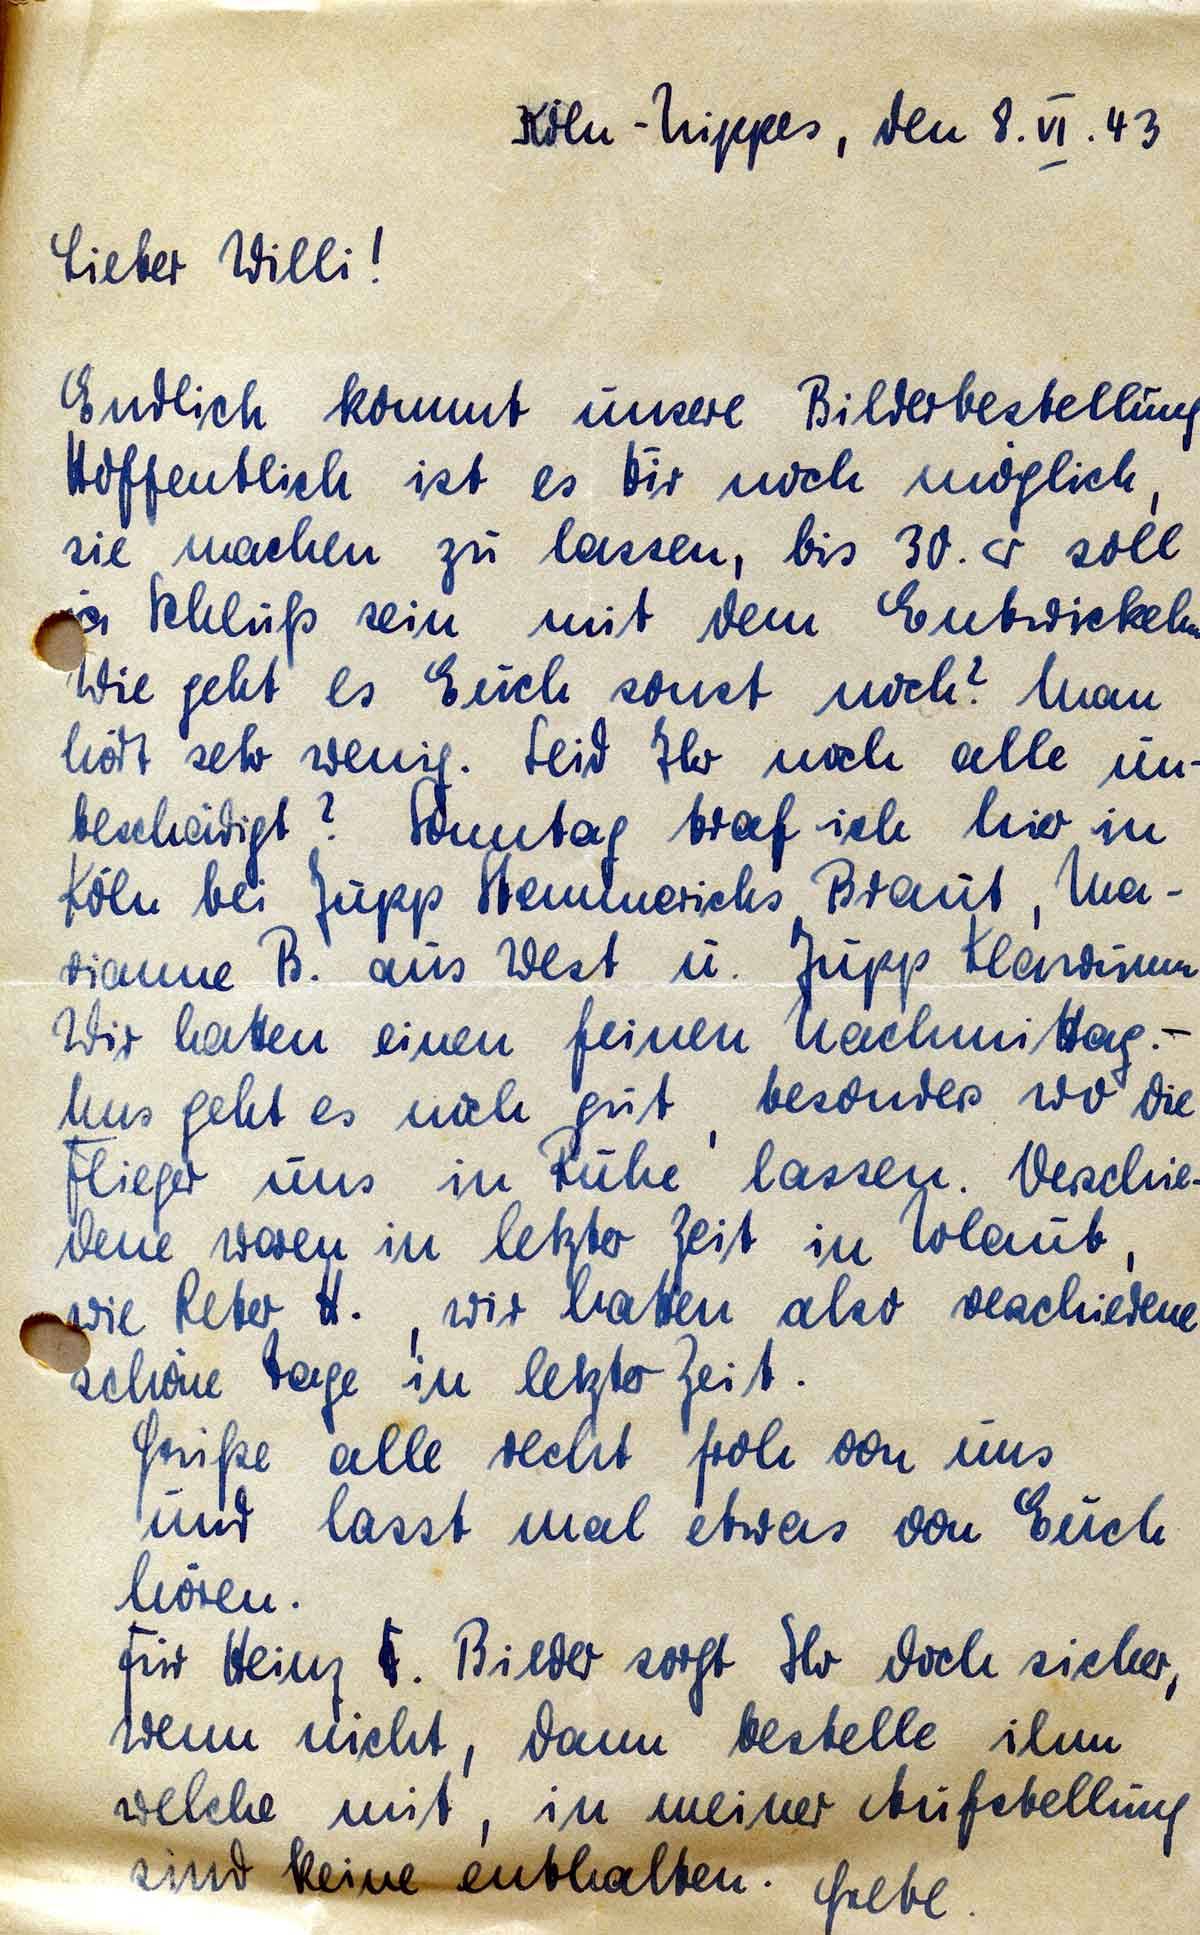 Köln-Nippes, den 8.VI.43
Lieber Willi!
Endlich kommt unsere Bilderbestellung
Hoffentlich ist es Dir noch möglich,
sie machen zu lassen, bis 30. er soll
ja Schluß sein mit dem Entwickeln
Wie geht es Euch sonst noch? Man
hört sehr wenig. Seid Ihr noch alle un-
beschädigt? Sonntag traf ich hier in
Köln bei Jupp Hemmerichs Braut, Ma-
rianne B. aus West u. Jupp
Wir hatten einen feinen Nachmittag.-
Uns geht es noch gut, besonders wo die
Flieger uns in Ruhe lassen. Verschie-
dene waren in letzter Zeit in Urlaub,
wie Peter H., wir hatten also verschiedene
schöne Tage in letzter Zeit.
Grüße alle recht froh von uns
und lasst mal etwas von Euch
hören.
Für Heinz F. Bilder sorgt Ihr doch sicher,
wenn nicht, dann bestelle ihm
welche mit, in meiner Aufstellung
sind keine enthalten.